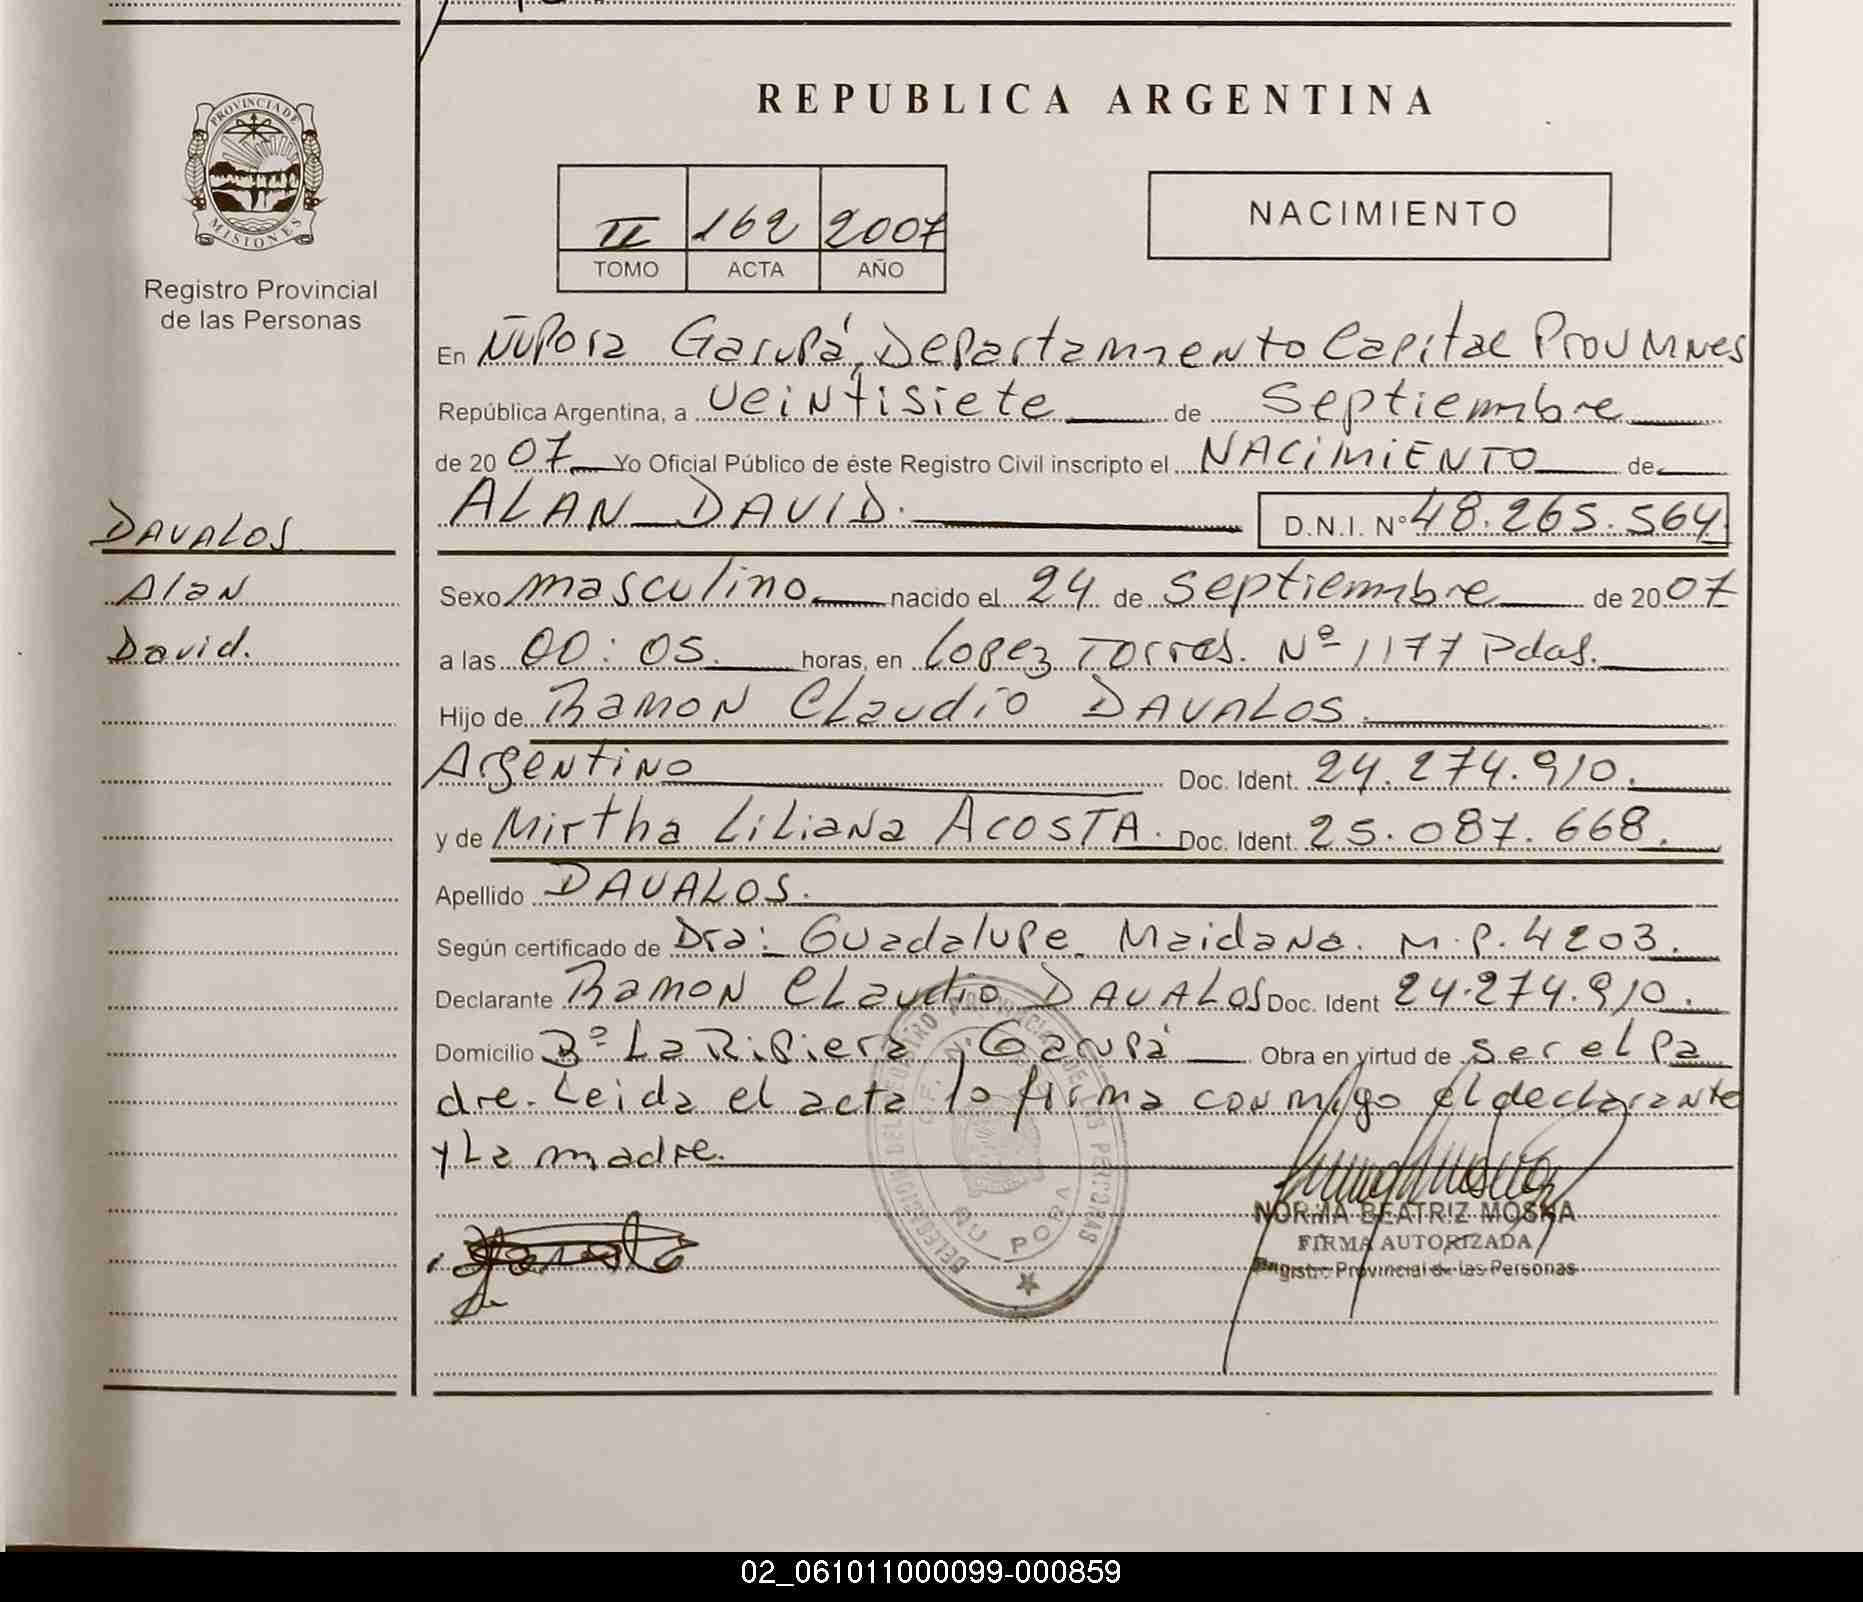 REPUBLICA ARGENTINA
PROVINCIA DE
MISIONES
Registro Provincial
de las Personas
II 162 2007
TOMO ACTA AÑO
NACIMIENTO
En Ñuporá Garupá, Departamento Capital Prov Mnes
República Argentina, a veintisiete de Septiembre
de 20 07 Yo Oficial Público de éste Registro Civil inscripto el NACIMIENTO de
ALAN DAVID. D.N.I. Nº 48.265.564
DAVALOS
Alan
David.
Sexo masculino nacido el 24 de septiembre de 20 07
a las 00:05. horas, en Lopez Torres. Nº 1177 Pdas.
Hijo de Ramon Claudio DAVALOS.
Argentino Doc. Ident. 24.274.910.
y de Mirtha Liliana ACOSTA. Doc. Ident. 25.087.668.
Apellido DAVALOS.
Según certificado de Dra: Guadalupe Maidana. M.P. 4203.
Declarante Ramon Claudio DAVALOS Doc. Ident 24.274.910.
Domicilio Bº La Ribiera, Garupá Obra en virtud de ser el pa
dre. Leida el acta la firma conmigo el declarante
y La madre.
NORMA BEATRIZ MOSKA
FIRMA AUTORIZADA
Registro Provincial de las Personas
DELEGACION DEL REGISTRO PROVINCIAL DE LAS PERSONAS
ÑU PORA
02_061011000099-000859